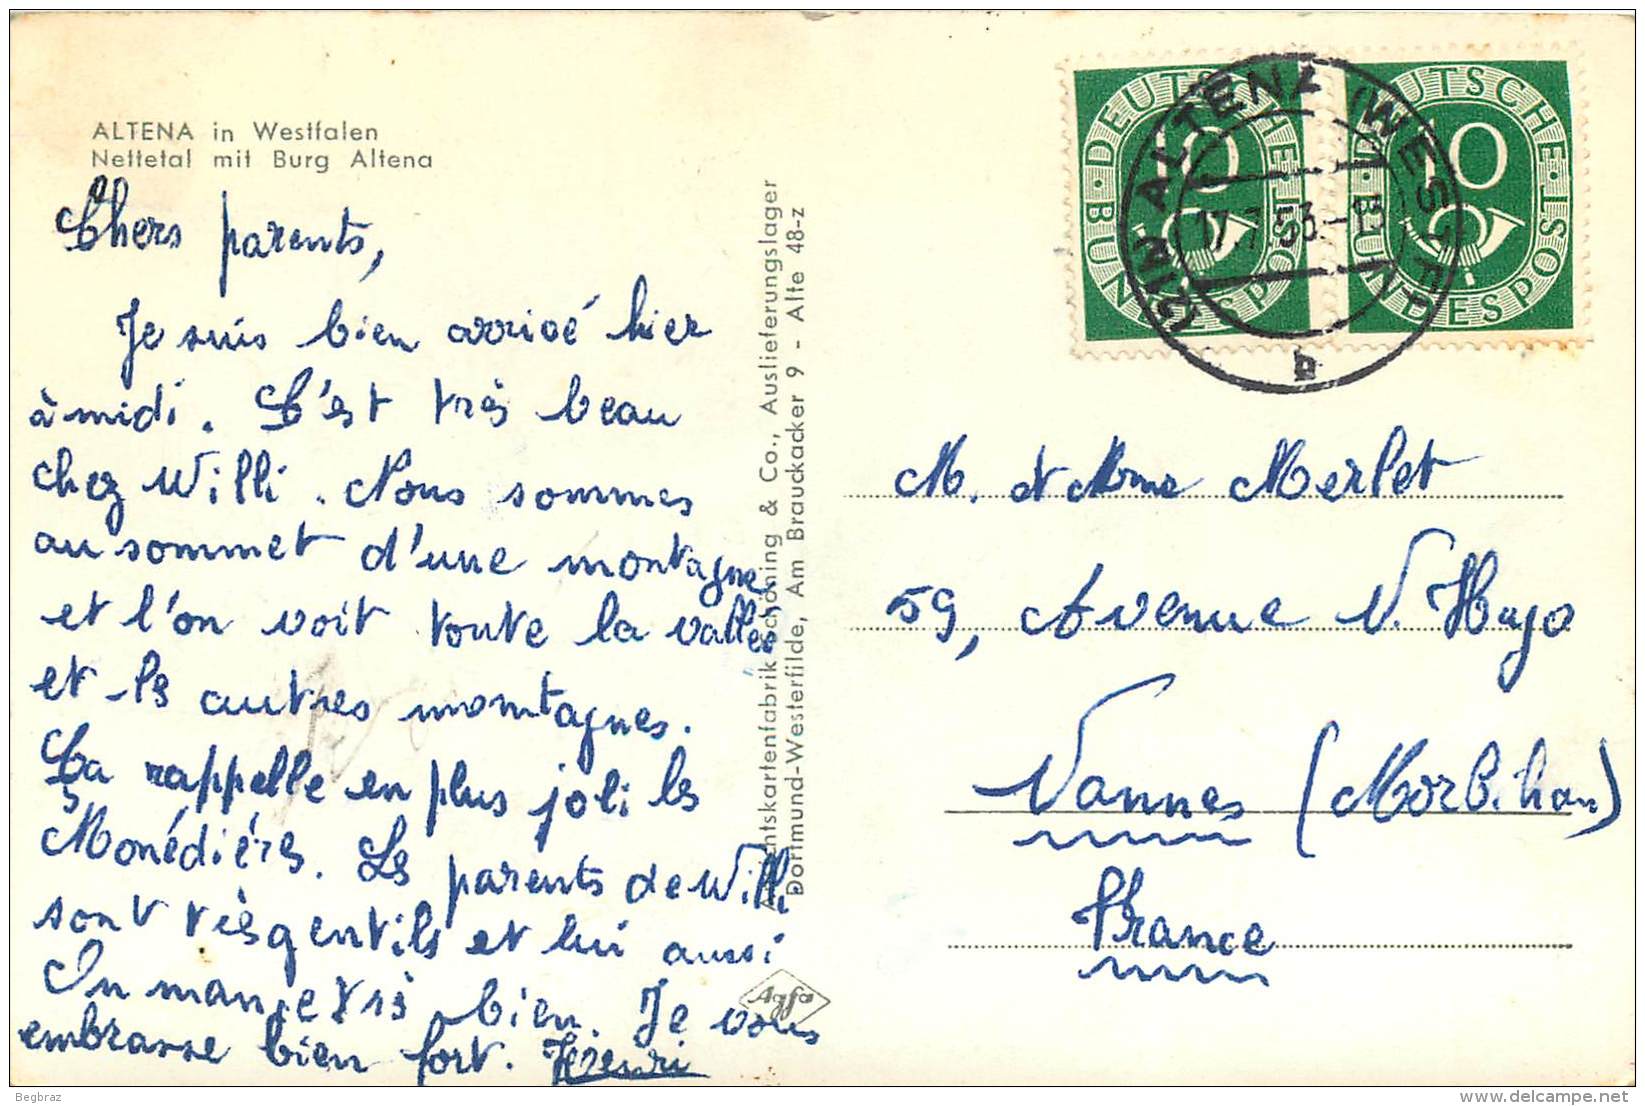 ALTENA in Westfalen
Nettetal mit Burg Altena
Chers parents,
Je suis bien arrivé hier
à midi. C'est très beau
chez Willi. Nous sommes
au sommet d'une montagne
et l'on voit toute la vallée
et les autres montagnes.
Ça rappelle en plus joli les
Monédières. Les parents de Willi
sont très gentils et lui aussi
On mange très bien. Je vous
embrasse bien fort. Henri
Ansichtskartenfabrik Schöning & Co., Auslieferungslager
Dortmund-Westerfilde, Am Brauckacker 9 - Alte 48-z
Agfa
DEUTSCHE BUNDESPOST
10
DEUTSCHE BUNDESPOST
10
(21) ALTENA (WESTF)
17.7.53.-13
b
M. et Mme Merlet
59, Avenue V. Hugo
Vannes (Morbihan)
France
Begbraz
delcampe.net